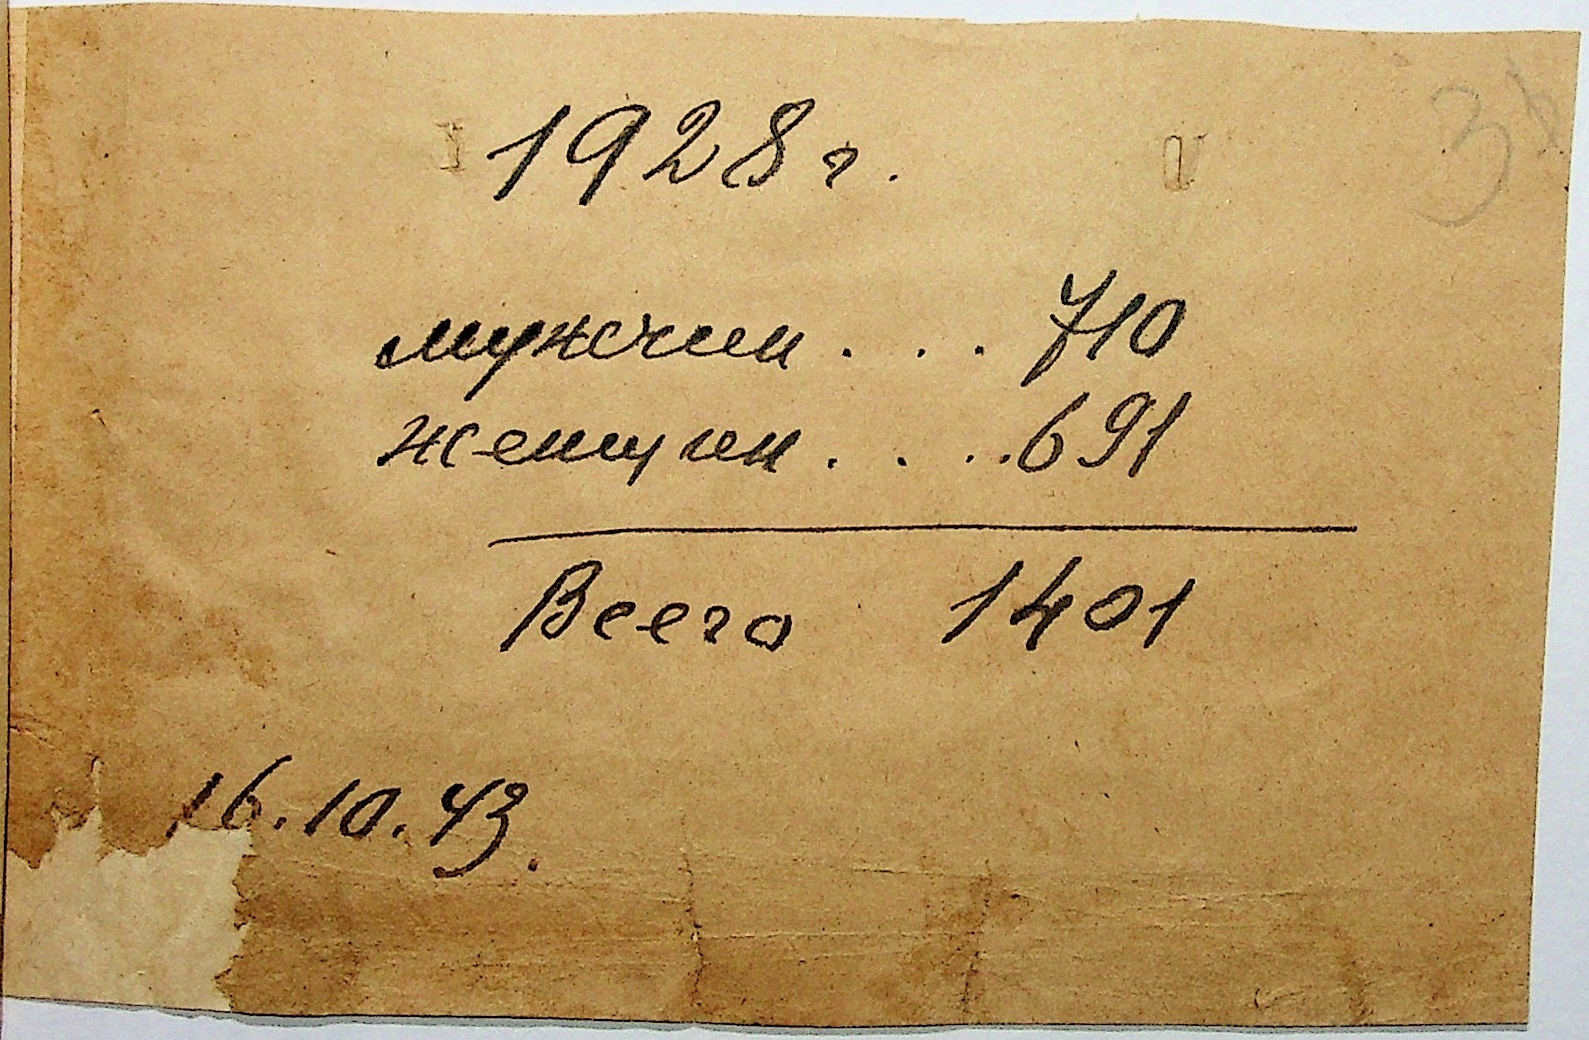 1928 г.
мужчин . . . 710
женщин . . . . 691
Всего 1401
16.10.43.